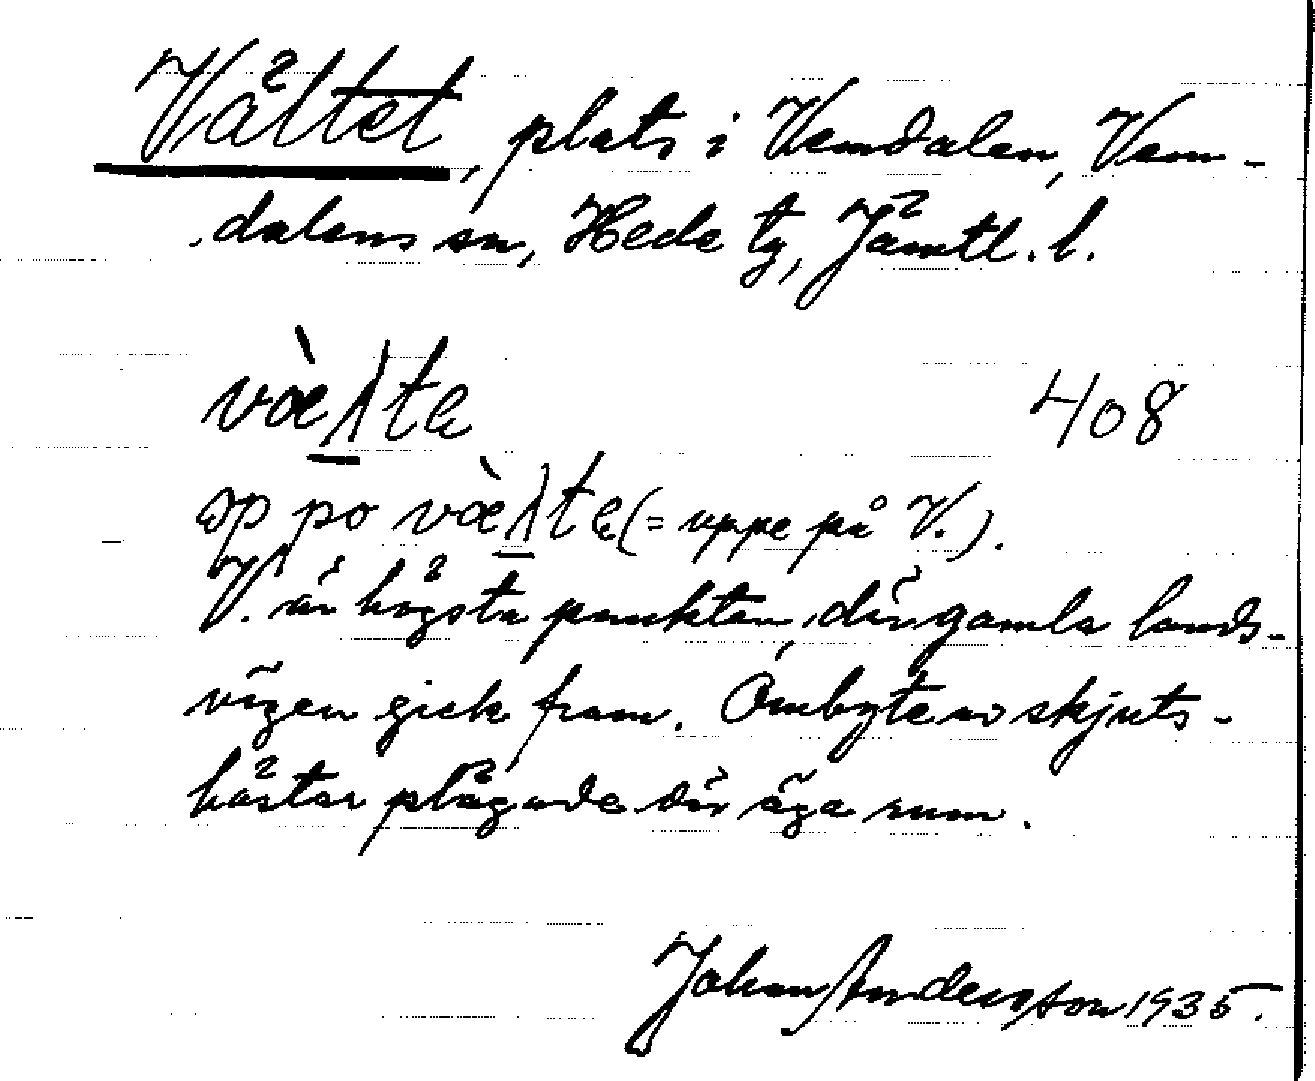 Vältet, plats i Vemdalen, Vem-
dalens sn, Hede tg, Jämtl. l.
væ̀λte 408
ɔp po væ̀λte (= uppe på V.).
V. är högsta punkten, där gamla lands-
vägen gick fram. Ombyte av skjuts-
hästar plägade där äga rum.
Johan Andersson 1935.